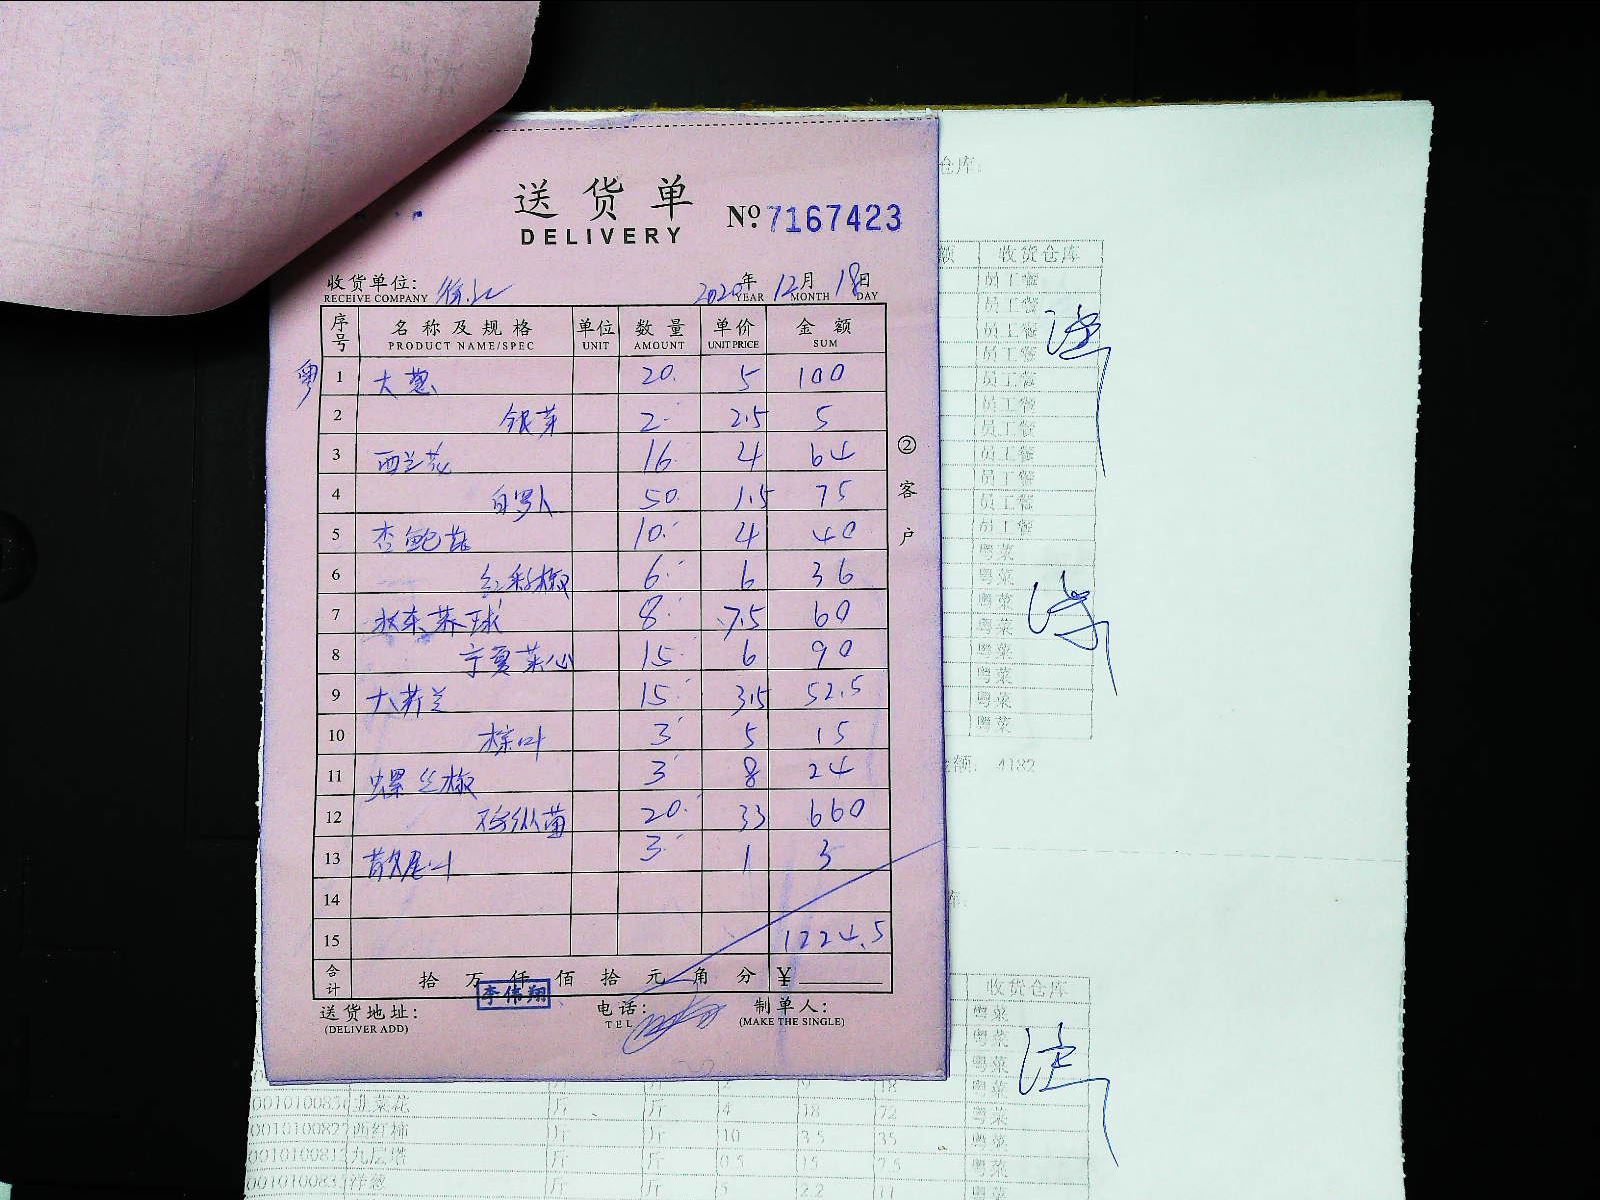 送货单
DELIVERY
№ 7167423
仓库:
收货单位: 徐汇 2020年12月18日
RECEIVE COMPANY YEAR MONTH DAY
序号 名称及规格 单位 数量 单价 金额
PRODUCT NAME/SPEC UNIT AMOUNT UNIT PRICE SUM
粤
1 大葱 20 5 100
2 银芽 2 2.5 5
3 西兰花 16 4 64
4 白罗卜 50 1.5 75
5 杏鲍菇 10 4 40
6 红彩椒 6 6 36
7 8 7.5 60
8 宁夏菜心 15 6 90
9 大芥兰 15 3.5 52.5
10 棕叶 3 5 15
11 螺丝椒 3 8 24
12 20 33 660
13 散尾叶 3 1 3
14
15 1224.5
合计 拾 万 仟 佰 拾 元 角 分 ¥
李伟翔
送货地址: 电话: 制单人:
(DELIVER ADD) TEL (MAKE THE SINGLE)
② 客户
额 收货仓库
员工餐
员工餐
员工餐
员工餐
员工餐
员工餐
员工餐
员工餐
员工餐
员工餐
员工餐
粤菜
粤菜
粤菜
粤菜
粤菜
粤菜
粤菜
粤菜
金额: 4182
收货仓库
粤菜
粤菜
粤菜
18 粤菜
韭菜花 斤 斤 4 18 72 粤菜
西红柿 斤 斤 10 3.5 35 粤菜
九层塔 斤 斤 0.5 15 7.5 粤菜
洋葱 斤 斤 5 2.2 11 粤菜